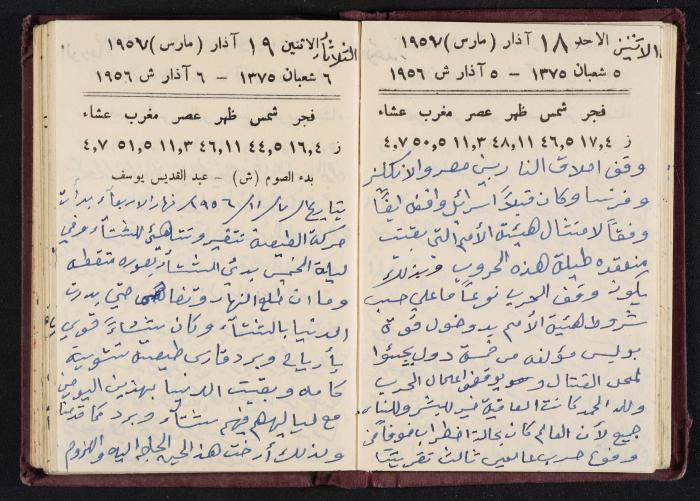 الاثنين
الاحد ١٨ آذار (مارس) ١٩٥٧
٥ شعبان ١٣٧٥ – ٥ آذار ش ١٩٥٦
فجر شمس ظهر عصر مغرب عشاء
ز ١٧,٤ ٤٦,٥ ٤٨,١١ ١١,٣ ٥٠,٥ ٤,٧
وقف اطلاق النار بين مصر والانكليز
وفرنسا وكان قبلاً اسرائيل واقفه ايضاً
وفقاً لامتثال هيئة الأمم التي بقيت
منعقده طيلة هذه الحروب وبذلك
يكون وقف الحرب نوعاً ما على حسب
شروط هيئة الأمم بدخول قوة
بوليس مؤلفه من خمسة دول يجيئوا
لمحل القتال ويوقفوا اعمال الحرب
ولله الحمد كانت العاقبة خير للبشر وللناس
جميع لأن العالم كان بحالة اضطراب خوفاً من
وقوع حرب عالمي ثالث تقريباً
الثلاثاء
الاثنين ١٩ آذار (مارس) ١٩٥٧
٦ شعبان ١٣٧٥ – ٦ آذار ش ١٩٥٦
فجر شمس ظهر عصر مغرب عشاء
ز ١٦,٤ ٤٤,٥ ٤٦,١١ ١١,٣ ٥١,٥ ٤,٧
بدء الصوم (ش) – عبد القديس يوسف
بتاريخ ٧/١١/١٩٥٦ نهار الاربعاء بدأت
حركة الطبيعة تتغير وتتأهب للشتاء وفي
ليلة الخميس بدئ الشتاء بصوره متقطعه
وما ان طلع النهار حتى بدرت
الدنيا بالشتاء وكان شتاء قوي
بأرياح وبرد قارس طبيعة شتوية
كامله وبقيت الدنيا بهذين اليومين
مع لياليهم فيهم شتاء وبرد كما قدمنا
ولذلك أرخت هذا الحين الحاجة اليه واللزوم